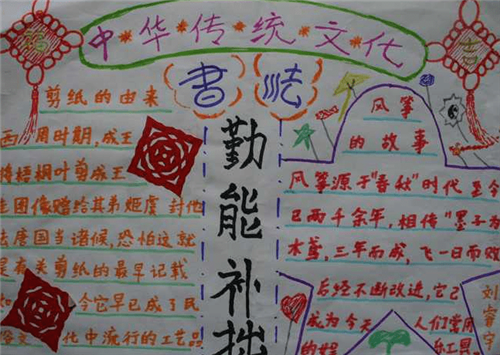 中华传统文化
吉
书法
剪纸的由来
西周时期,成王
将梧桐叶剪成王
圭图像赠给其弟姬虞 封他
去度国当诸侯,恐怕这就
是有关剪纸的最早记载
今它早已成了民
化中流行的工艺品
勤能补拙
风筝
的故事
风筝源于"春秋"时代
已两千余年,相传"墨子为
木鸢,三年而成,飞一日而败
后经不断改进,它已
成为今天 人们常用
乐工具